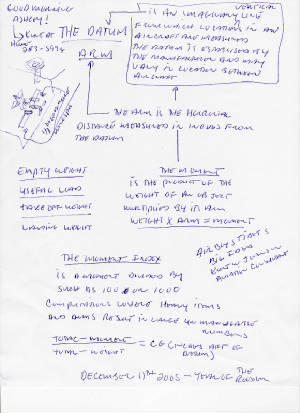 GOOD MORNING
ASHLEY!
THE DATUM
Home
283-5934
ARM
VERTICAL
IS AN IMAGINARY LINE
FROM WHICH LOCATIONS IN AN
AIRCRAFT ARE MEASURED
THE DATUM IS ESTABLISHED BY
THE MANUFACTURER AND MAY
VARY IN LOCATION BETWEEN
AIRCRAFT
THE ARM IS THE HORIZONTAL
DISTANCE MEASURED IN INCHES FROM
THE DATUM
EMPTY WEIGHT
USEFUL LOAD
TAKE OFF WEIGHT
LANDING WEIGHT
THE MOMENT
IS THE PRODUCT OF THE
WEIGHT OF AN OBJECT
MULTIPLIED BY ITS ARM
WEIGHT X ARM = MOMENT
THE MOMENT INDEX
IS A MOMENT DIVIDED BY
SUCH AS 100 OR 1000
COMPUTATIONS WHERE HEAVY ITEMS
AND ARMS RESULT IN LARGE UNMANAGEABLE
NUMBERS
TOTAL MOMENT
TOTAL WEIGHT
= CG (INCHES AFT OF
DATUM)
BIG IOWA
DECEMBER 17TH 2005 - YEAR OF THE